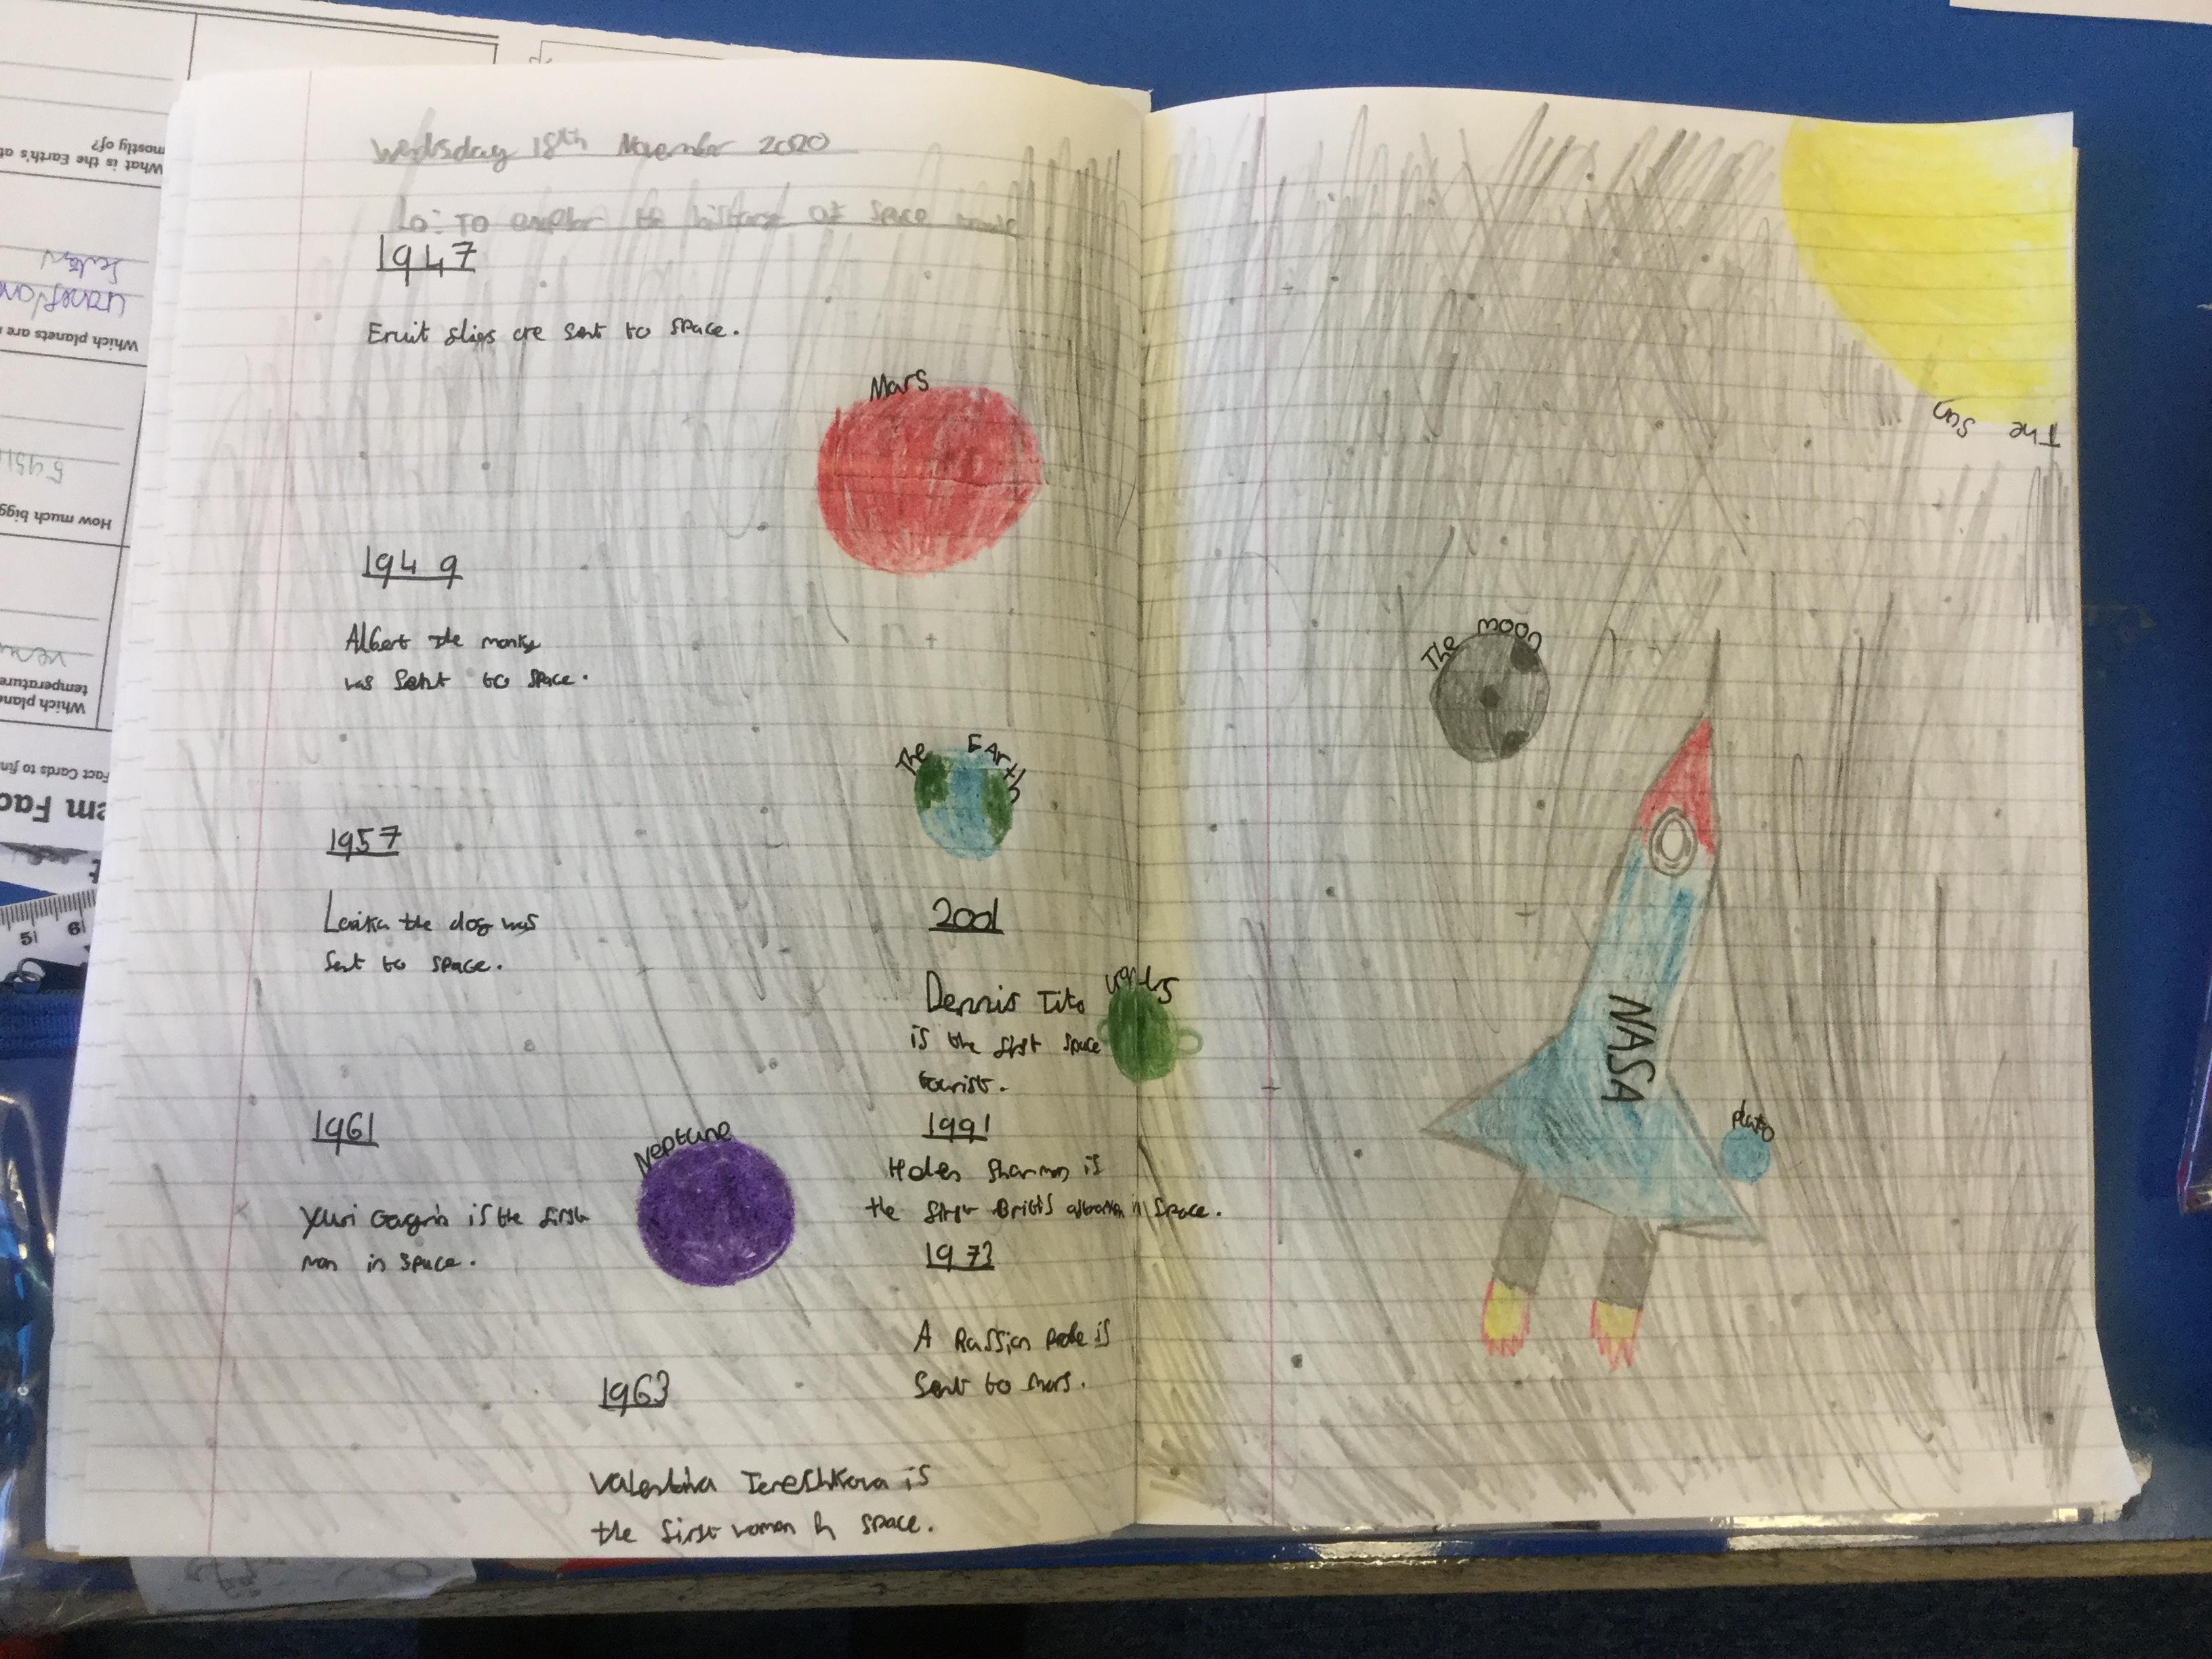 Wedsday 18th November 2020
Lo: To explor the history of space
1947
Fruit flies are sent to space.
Mars
1949
Albert the monky
was sent to space.
The Earth
1957
Laika the dog was
sent to space.
2001
Dennis Tito
is the first space
tourist.
1961
Yuri Gagrin is the first
man in space.
Neptune
1991
Helen Sharman is
the first British in space.
1973
A Russian probe is
sent to Mars.
1963
Valentina Tereshkova is
the first women in space.
The Sun
The moon
NASA
pluto
What is the Earth's at
mostly of?
Which planets are
How much bigg
Which plane
temperature
Fact Cards to fin
em Fac
5 6